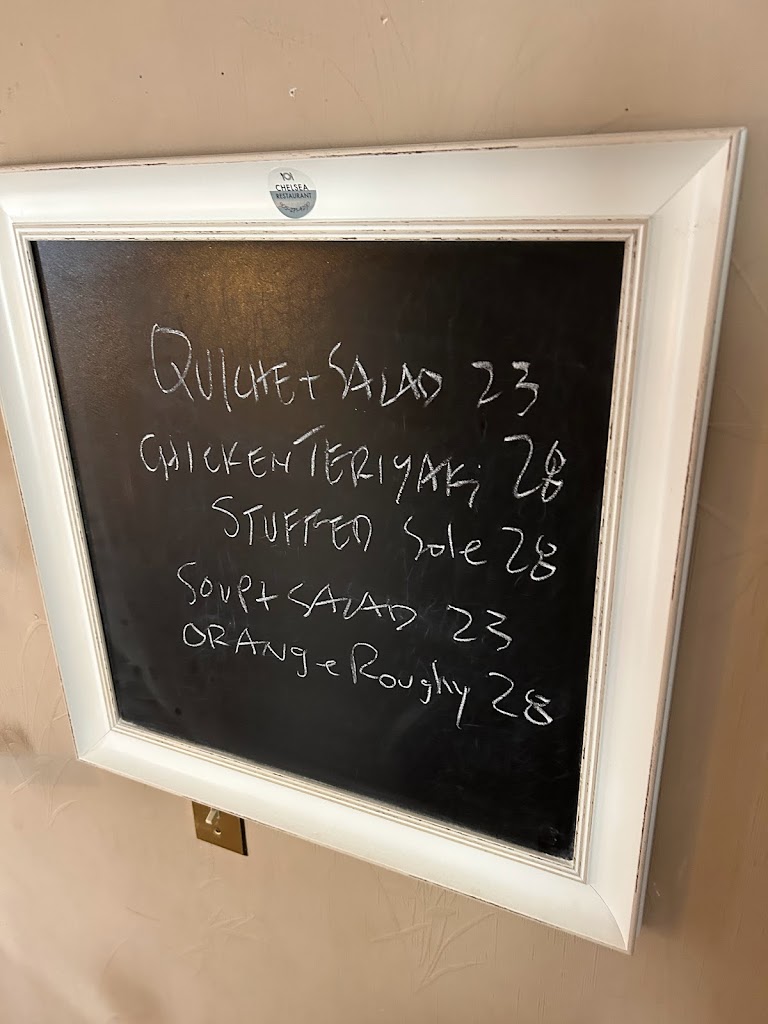 CHELSEA
RESTAURANT
QUICHE + SALAD 23
CHICKEN TERIYAKi 28
STUFFED Sole 28
SOUP + SALAD 23
ORANge Roughy 28